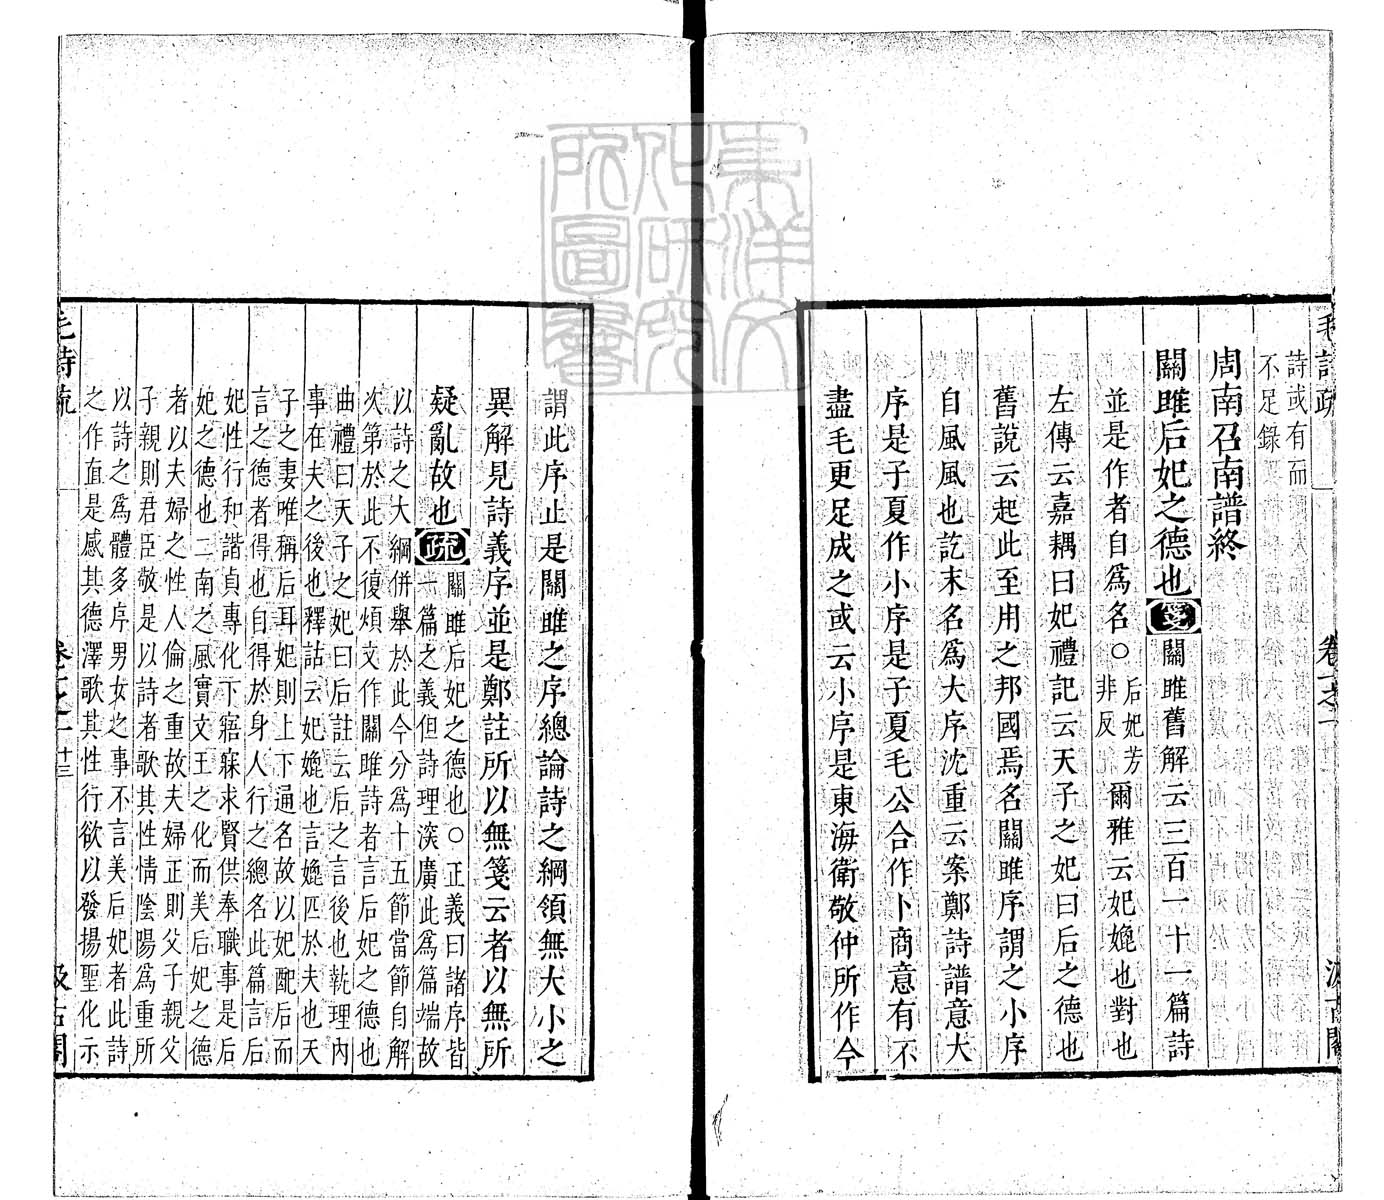 毛詩疏
卷一之一
汲古閣
詩或有而
不足錄
周南召南譜終
關雎后妃之德也箋關雎舊解云三百一十一篇詩
並是作者自爲名○后妃芳
非反爾雅云妃媲也對也
左傳云嘉耦曰妃禮記云天子之妃曰后之德也
舊說云起此至用之邦國焉名關雎序謂之小序
自風風也訖末名爲大序沈重云案鄭詩譜意大
序是子夏作小序是子夏毛公合作卜商意有不
盡毛更足成之或云小序是東海衛敬仲所作今
謂此序止是關雎之序總論詩之綱領無大小之
異解見詩義序並是鄭註所以無箋云者以無所
疑亂故也疏關雎后妃之德也○正義曰諸序皆
一篇之義但詩理深廣此爲篇端故
以詩之大綱併舉於此今分爲十五節當節自解
次第於此不復煩文作關雎詩者言后妃之德也
曲禮曰天子之妃曰后註云后之言後也執理內
事在夫之後也釋詁云妃媲也言媲匹於夫也天
子之妻唯稱后耳妃則上下通名故以妃配后而
言之德者得也自得於身人行之總名此篇言后
妃性行和諧貞專化下寤寐求賢供奉職事是后
妃之德也二南之風實文王之化而美后妃之德
者以夫婦之性人倫之重故夫婦正則父子親父
子親則君臣敬是以詩者歌其性情陰陽爲重所
以詩之爲體多序男女之事不言美后妃者此詩
之作直是感其德澤歌其性行欲以發揚聖化示
毛詩疏
卷一之一
十三
汲古閣
東洋文
化研究
所圖書